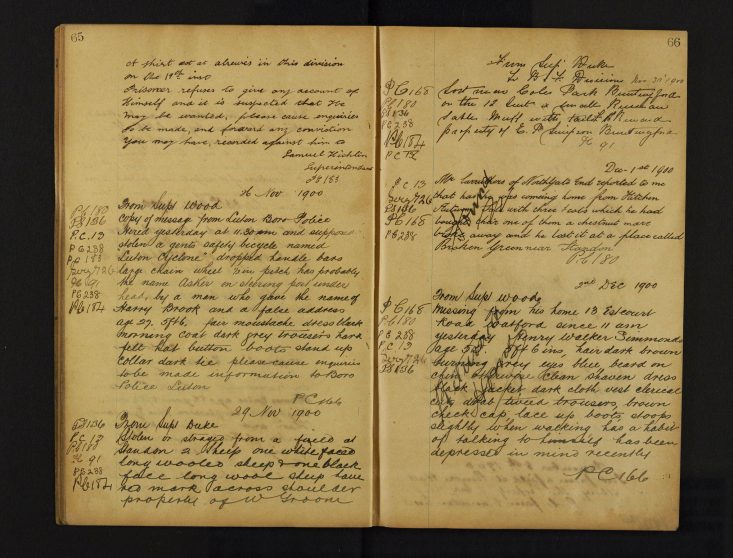 65
at alrewis in this division
on the 19th inst
Prisoner refuses to give any account of
Himself and it is suspected that He
may be wanted, please cause enquiries
to be made, and forward any conviction
You may have, recorded against him to
Samuel
Superintendent
PS 183
26 Nov 1900
PC 180
PS 136
PC 13
PC 238
PC 183
PC 238
PC 184
From Supt Wood
Copy of message from Luton Boro Police
Hired yesterday at 11.30 am and supposed
stolen a gents safety bicycle named
Luton Cyclone dropped handle bars
large chain wheel ½ in pitch has probably
the name Asher on steering post under
head, by a man who gave the name of
Harry Brook and a false address
age 27. 5ft6, fair moustache dress black
morning coat dark grey trousers hard
felt hat button boots stand up
collar dark tie please cause enquiries
to be made information to Boro
Police Luton
PC 166
29 Nov 1900
PS 136
PC 13
PC 180
91
PC 238
PC 184
From Supt Duke
Stolen or strayed from a field at
Sandon 2 sheep one white faced
long wooled sheep & one black
face long wool sheep have
red mark across shoulder
property of W Groom
66
From Supt Duke
To B & F Division Nov 30th 1900
PC 168
PC 180
PS 136
PC 184
PC 13
Lost near Coles Park Buntingford
on the 12 Inst a small Russian
Sable Muff with tails £1 Reward
property of E. P. Simpson Buntingford
91
Dec 1st 1900
PC 13
PS 136
PC 168
PC 238
Mr of Northgate End reported to me
that having was coming home from Hitchin
with three colts which he had
bought one of them a chestnut mare
broke away and he lost it at a place called
Broken Green near Standon
PC 180
2nd DEC 1900
PC 168
PC 180
PC 238
PC 13
PS 136
From Supt Wood
Missing from his home 13 Estcourt
Road Watford since 11 am
yesterday Henry Walker Simmonds
age 5ft 6 ins, hair dark brown
turning grey eyes blue, beard on
chin otherwise clean shaven dress
black jacket dark cloth vest clerical
cut, drab tweed trousers, brown
check cap, lace up boots, stoops
slightly when walking has a habit
of talking to himself has been
depressed in mind recently
PC 166